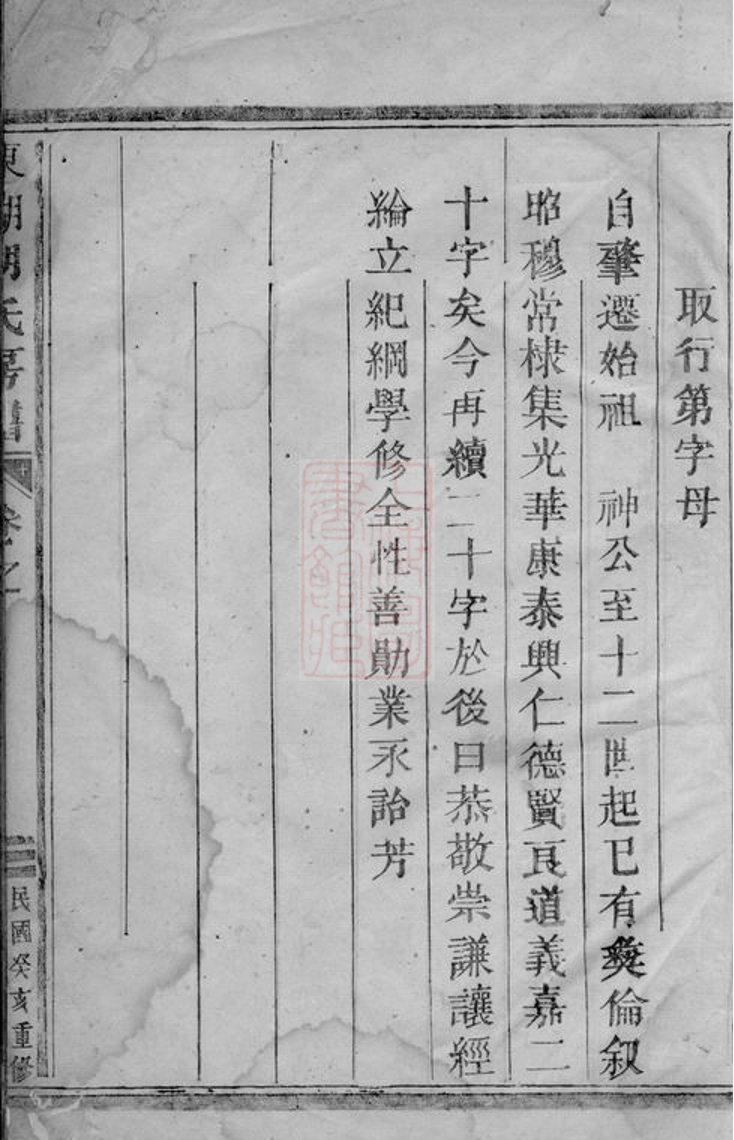 取行第字母
自肇遷始祖　神公至十二世起已有彜倫叙
昭穆常棣集光華康泰興仁德賢良道義嘉二
十字矣今再續二十字於後曰恭敬崇謙讓經
綸立紀綱學修全性善勛業永詒芳
東湖胡氏房譜 卷之二
民國癸亥重修